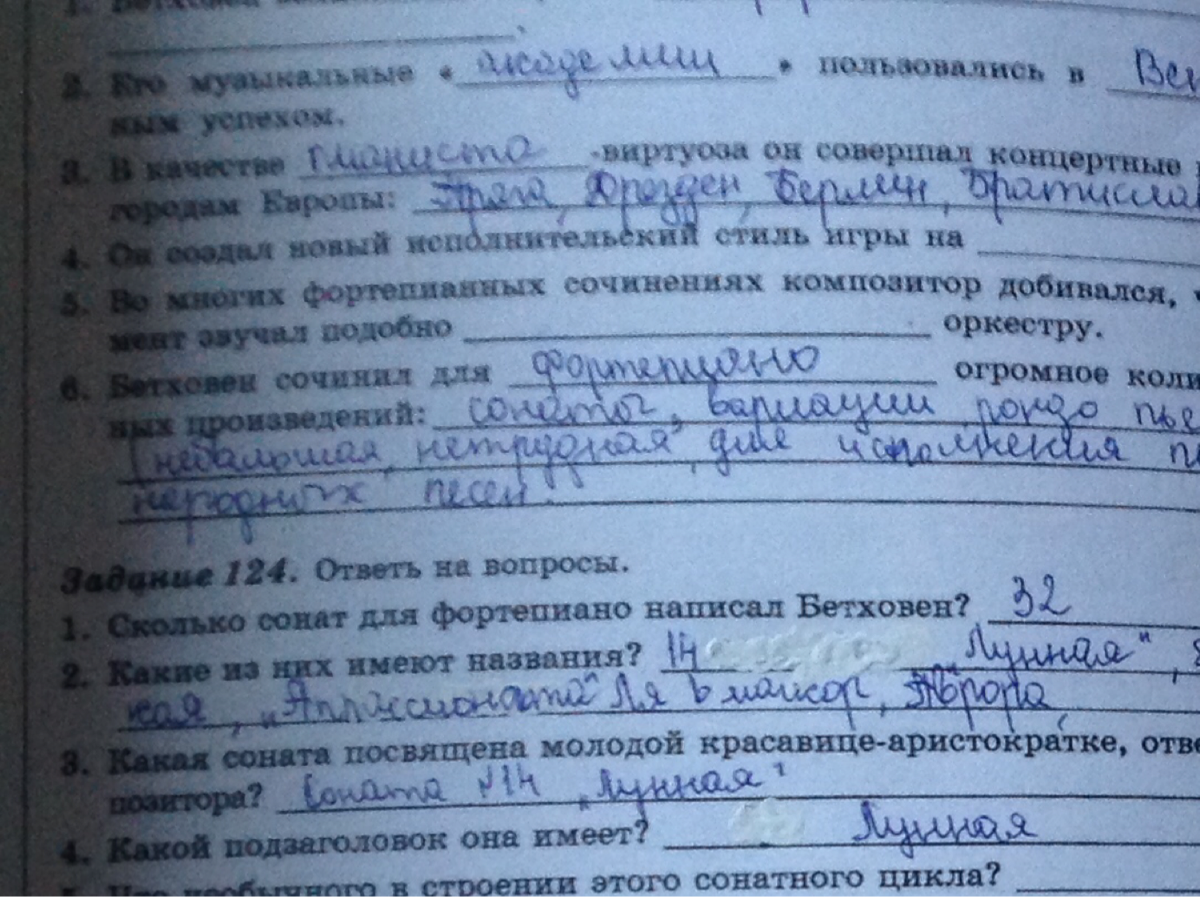 1. Бетховен
2. Его музыкальные « академии » пользовались в Вен
ным успехом.
3. В качестве пианиста -виртуоза он совершал концертные
городам Европы: Прага, Дрезден, Берлин, Братисла
4. Он создал новый исполнительский стиль игры на
5. Во многих фортепианных сочинениях композитор добивался,
мент звучал подобно оркестру.
6. Бетховен сочинил для фортепиано огромное коли
ных произведений: соната, вариации рондо пье
(небальшая, нетрудная, для исполнения
народных песен.
Задание 124. Ответь на вопросы.
1. Сколько сонат для фортепиано написал Бетховен? 32
2. Какие из них имеют названия? 14 Лунная",
кая, „Аппассионата" Ля ь мажор, Аврора,
3. Какая соната посвящена молодой красавице-аристократке, отве
позитора? Соната №14 „Лунная"
4. Какой подзаголовок она имеет? Лунная
5. Что необычного в строении этого сонатного цикла?